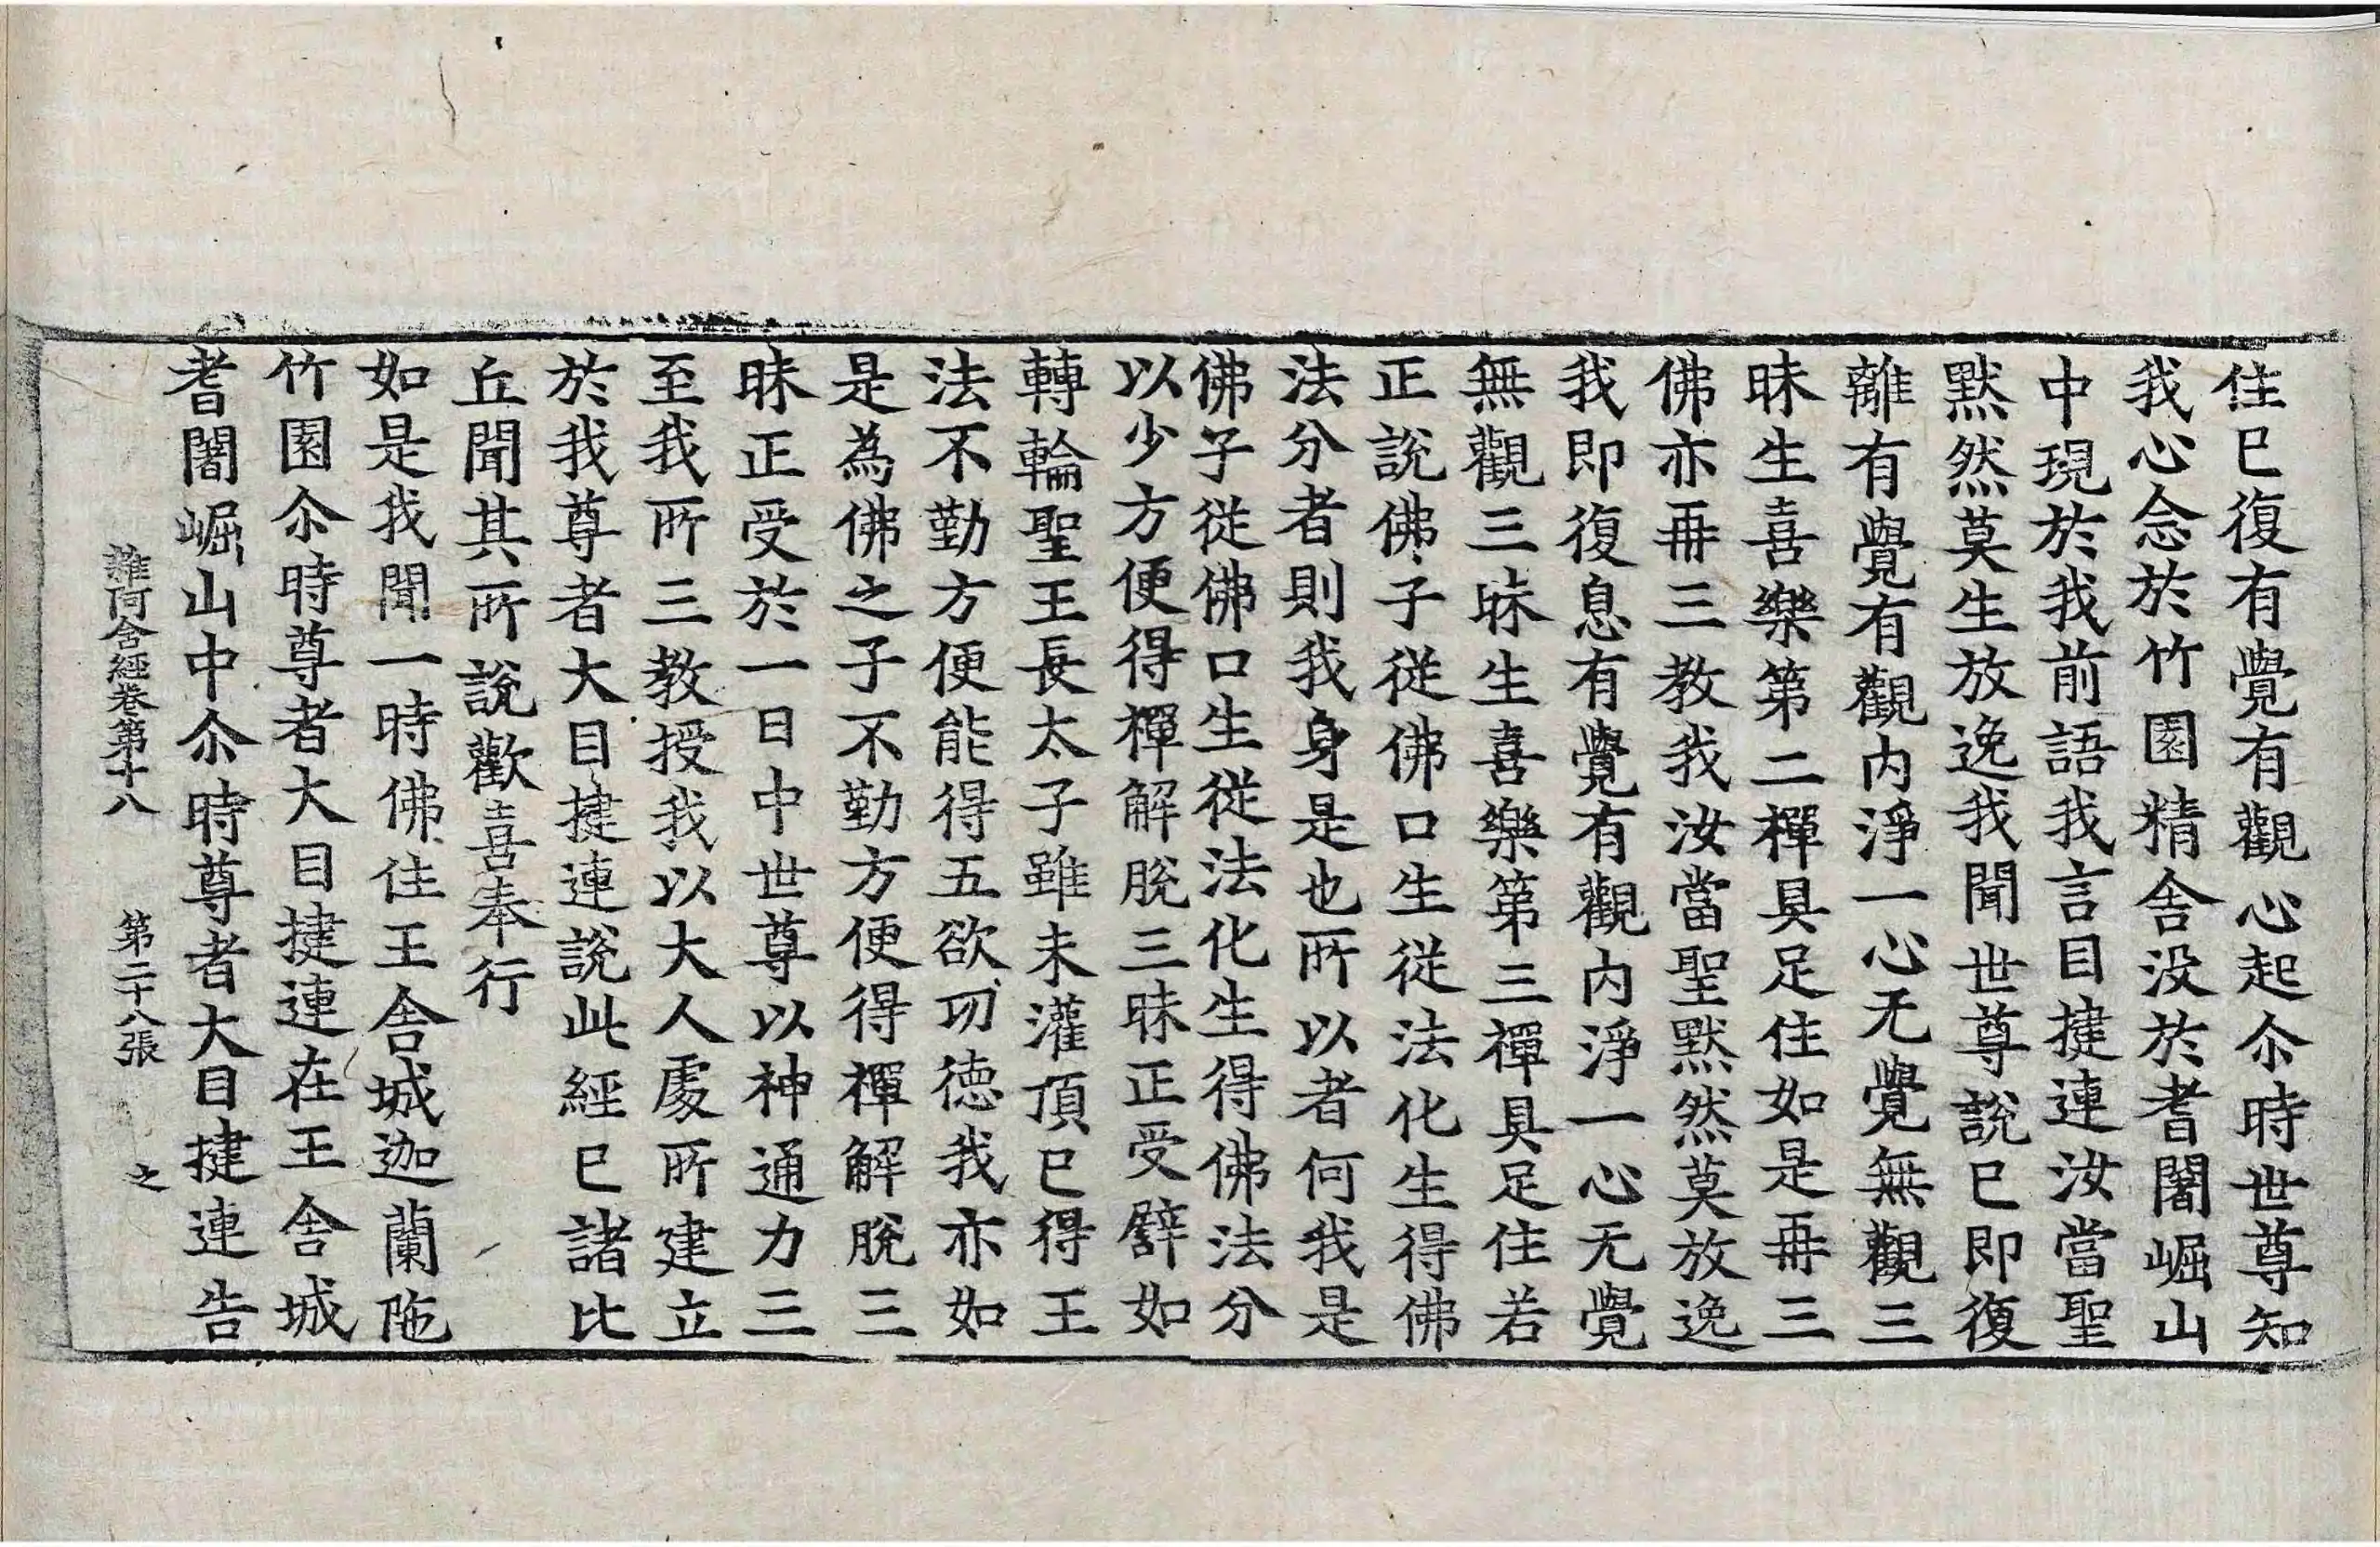 住已復有覺有觀心起尒時世尊知
我心念於竹園精舍没於耆闍崛山
中現於我前語我言目揵連汝當聖
默然莫生放逸我聞世尊說已即復
離有覺有觀内淨一心无覺無觀三
昧生喜樂第二禪具足住如是再三
佛亦再三教我汝當聖默然莫放逸
我即復息有覺有觀内淨一心无覺
無觀三昧生喜樂第三禪具足住若
正說佛子從佛口生從法化生得佛
法分者則我身是也所以者何我是
佛子從佛口生從法化生得佛法分
以少方便得禪解脫三昧正受譬如
轉輪聖王長太子雖未灌頂已得王
法不勤方便能得五欲功德我亦如
是為佛之子不勤方便得禪解脫三
昧正受於一日中世尊以神通力三
至我所三教授我以大人處所建立
於我尊者大目揵連說此經已諸比
丘聞其所說歡喜奉行
如是我聞一時佛住王舍城迦蘭陁
竹園尒時尊者大目揵連在王舍城
耆闍崛山中尒時尊者大目揵連告
雜阿含經卷第十八 第二十八張 之